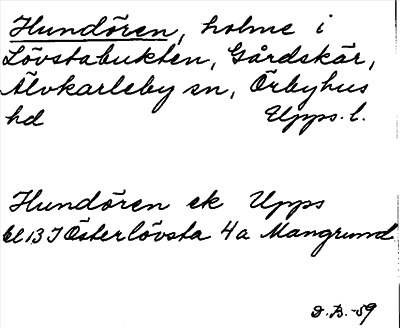 Hundören, holme i
Lövstabukten, Gårdskär,
Älvkarleby sn, Örbyhus
hd Upps. l.
Hundören ek Upps
bl 13 J Österlövsta 4a Mangrund
D.B. -59